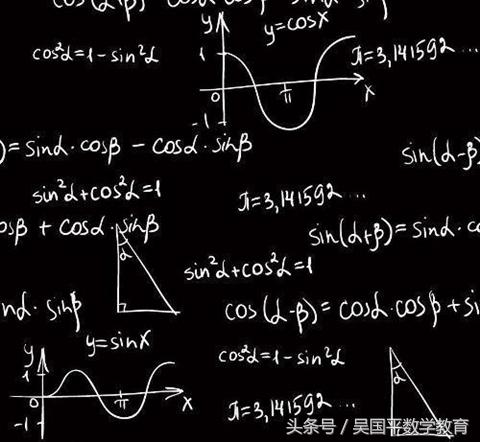 y
y=cosx
cos²α=1-sin²α
1
π=3,141592...
0
π
x
-1
)=sinα·cosβ - cosα·sinβ
sin(α-β)
sin²α+cos²α=1
π=3,141592...
osβ + cosα·sinβ
sin(α+β)=sinα·co
α
sin²α+cos²α=1
nα·sinβ
cos(α-β)=cosα·cosβ+si
y
y=sinx
cos²α=1-sin²α
1
α
0
π
x
π=3,141592...
-1
头条号 / 吴国平数学教育